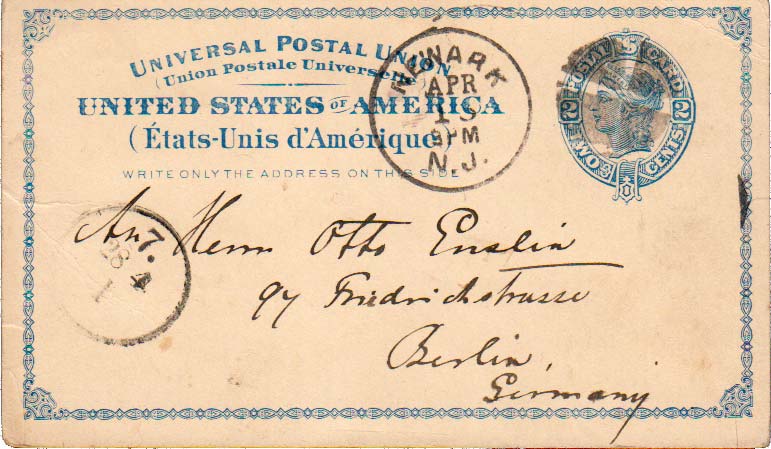 UNIVERSAL POSTAL UNION
(Union Postale Universelle)
UNITED STATES OF AMERICA
(États-Unis d'Amérique)
WRITE ONLY THE ADDRESS ON THIS SIDE
NEWARK
APR
N.J.
POSTAL CARD
2 2
TWO CENTS
An Herrn Otto Enslin
97 Friedrichstrasse
Berlin,
Germany
7.
28 4
1